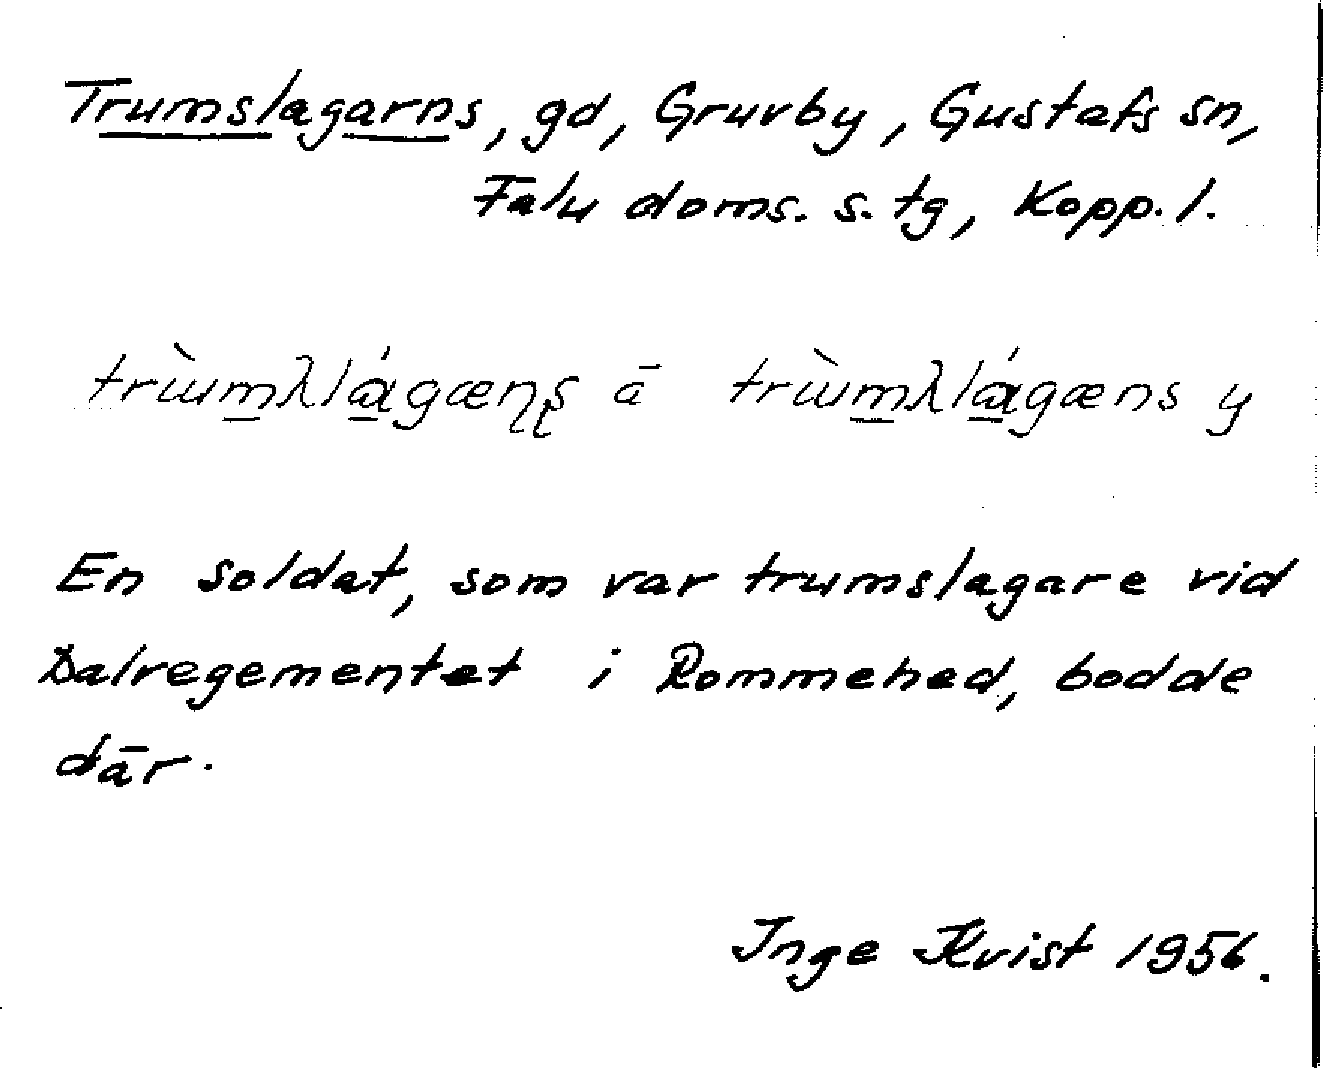 Trumslagarns, gd, Gruvby, Gustafs sn,
Falu doms. s. tg, Kopp. l.
trùmλlágæɳʂ ä trùmλlágæns y
En soldat, som var trumslagare vid
Dalregementet i Rommehed, bodde
där.
Inge Kvist 1956.